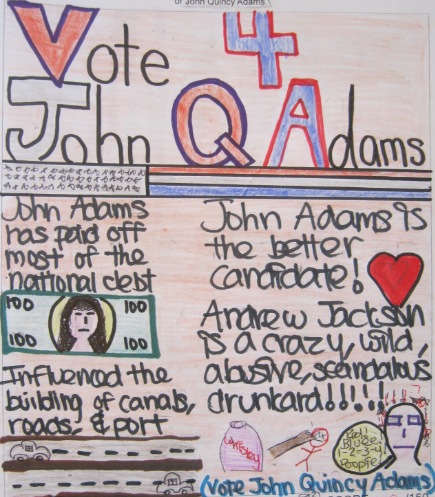 or John Quincy Adams.
Vote 4
John Q Adams
John Adams
has paid off
most of the
national debt
100 100
100 100
Influenced the
building of canals,
roads, & port
John Adams is
the better
candidate!
Andrew Jackson
is a crazy, wild,
abusive, scandalous
drunkard!!!!!
Whiskey
Red!
Blue!
1-2-3-4!
(Vote John Quincy Adams)